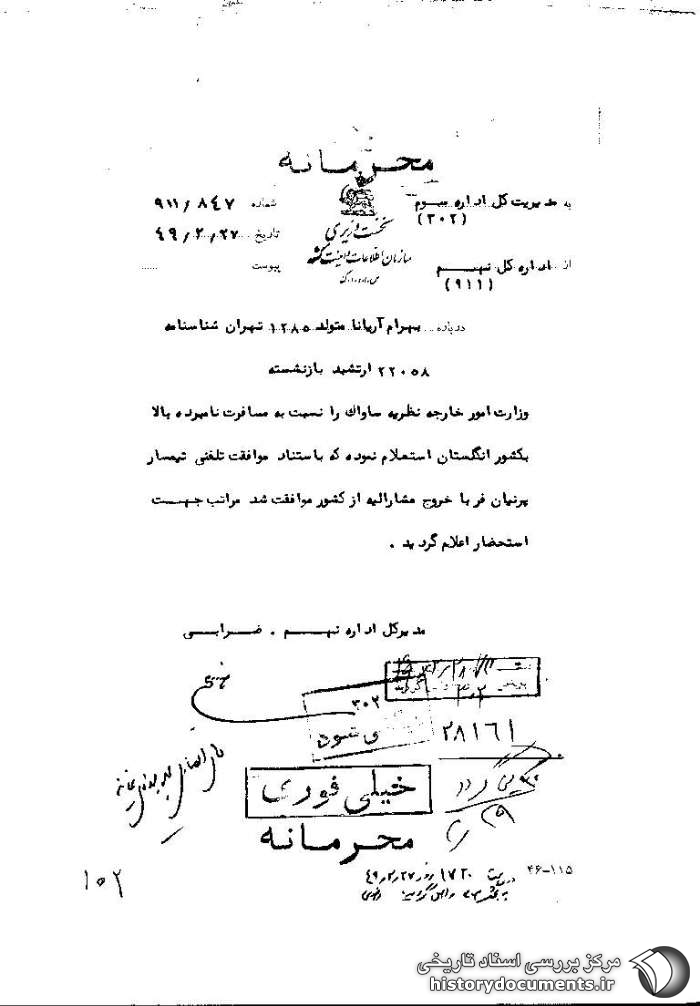 محرمانه
به مدیریت کل اداره سوم
(۳۰۲)
شماره ۹۱۱/۸۴۷
نخست وزیری
تاریخ ۴۹/۲/۲۷
سازمان اطلاعات و امنیت کشور
از اداره کل نهم
(۹۱۱)
پیوست
درباره بهرام آریانا متولد ۱۲۸۵ تهران شناسنامه
۲۲۰۵۸ ارتشبد بازنشسته
وزارت امور خارجه نظریه ساواک را نسبت به مسافرت نامبرده بالا
بکشور انگلستان استعلام نموده که باستناد موافقت تلفنی تیمسار
پرنیان فر با خروج مشارالیه از کشور موافقت شد مراتب جهت
استحضار اعلام گردید .
مدیرکل اداره نهم . ضرابی
۳۰۲
۲۸۱۶۱
خیلی فوری
محرمانه
۴۶-۱۱۵
ساعت ۱۷۲۰ روز ۴۹/۲/۲۷
۱۰۲
مرکز بررسی اسناد تاریخی
historydocuments.ir